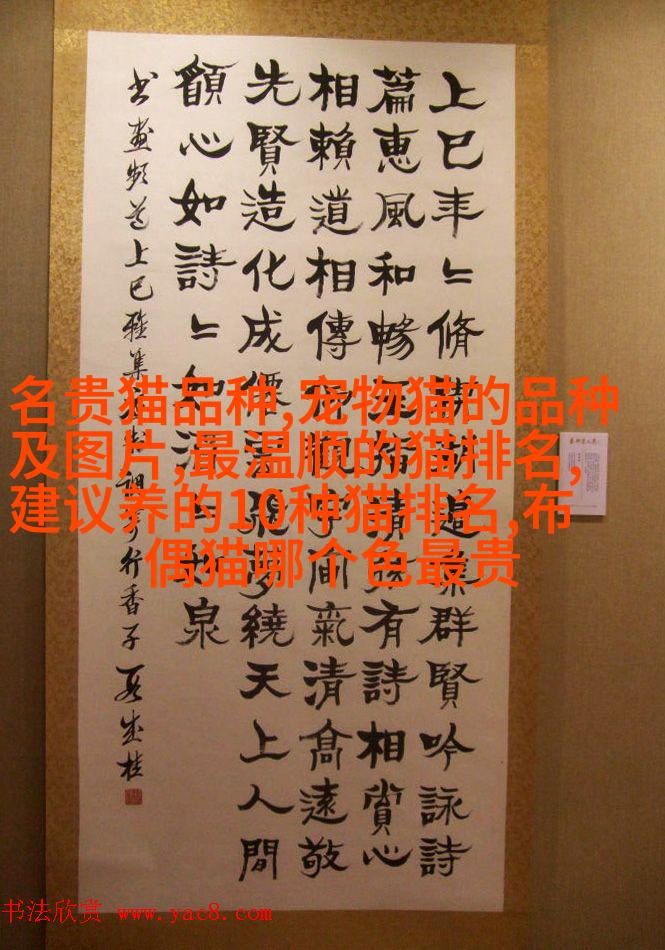 上巳年〻脩 群賢吟詠詩
篇惠風和暢 有詩相賞心
相賴道相傳 順 間氣清高遠敬
先賢造化成 繞天上人間
願心如詩〻如 泉
书畫频道上巳雅集 行香子
名贵猫品种,宠物猫的品种
及图片,最温顺的猫排名,
建议养的10种猫排名,布
偶猫哪个色最贵
书法欣赏 www.yac8.com